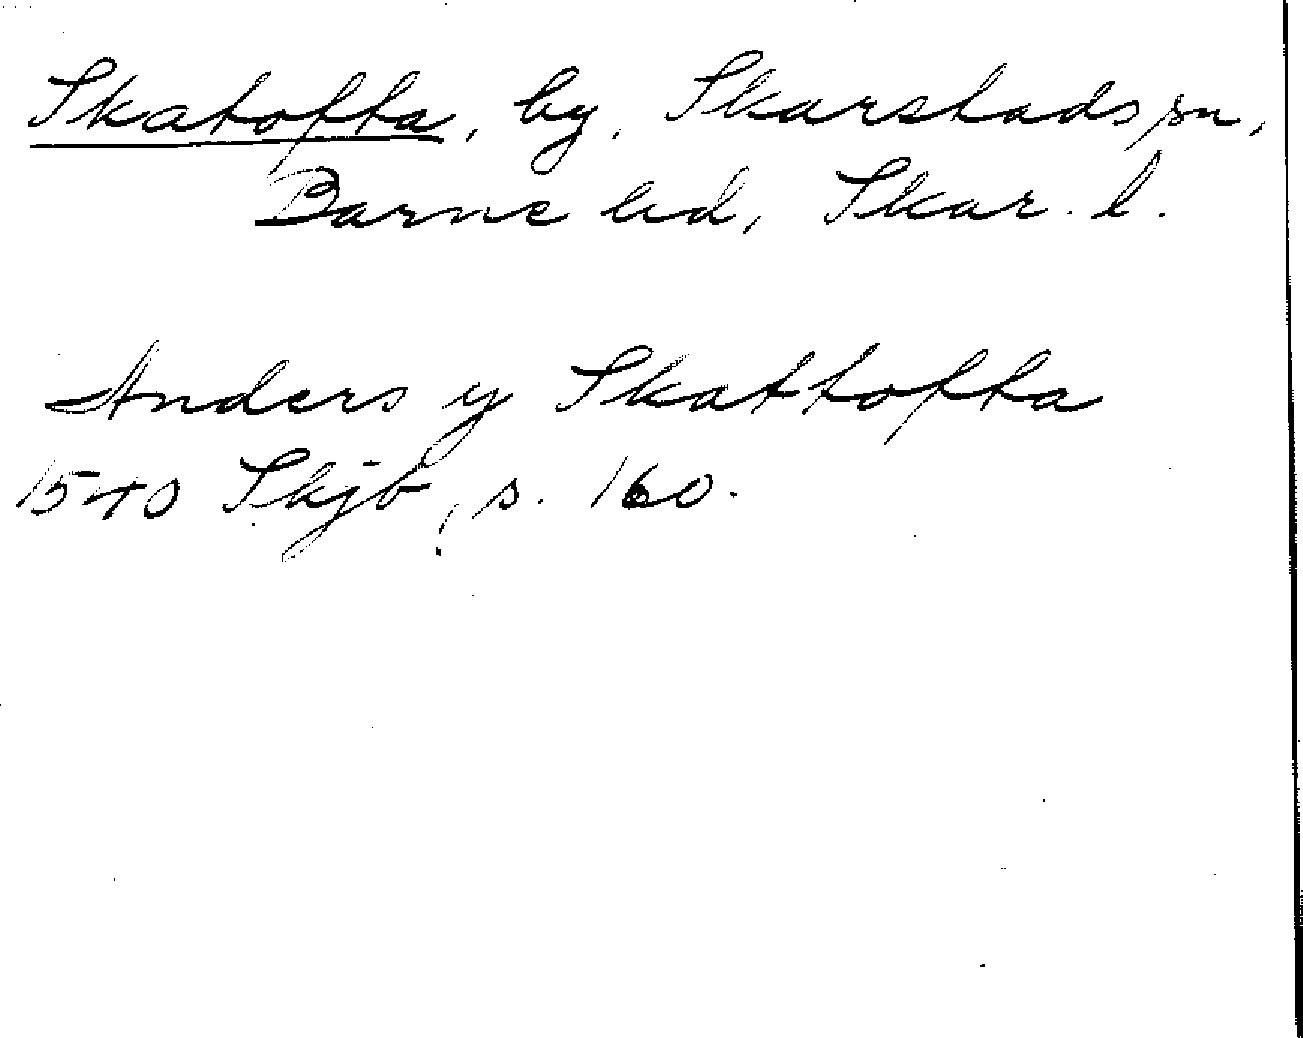 Skatofta, by, Skarstads sn,
Barne hd, Skar. l.
Anders y Skattofta
1540 Skjb, s. 160.